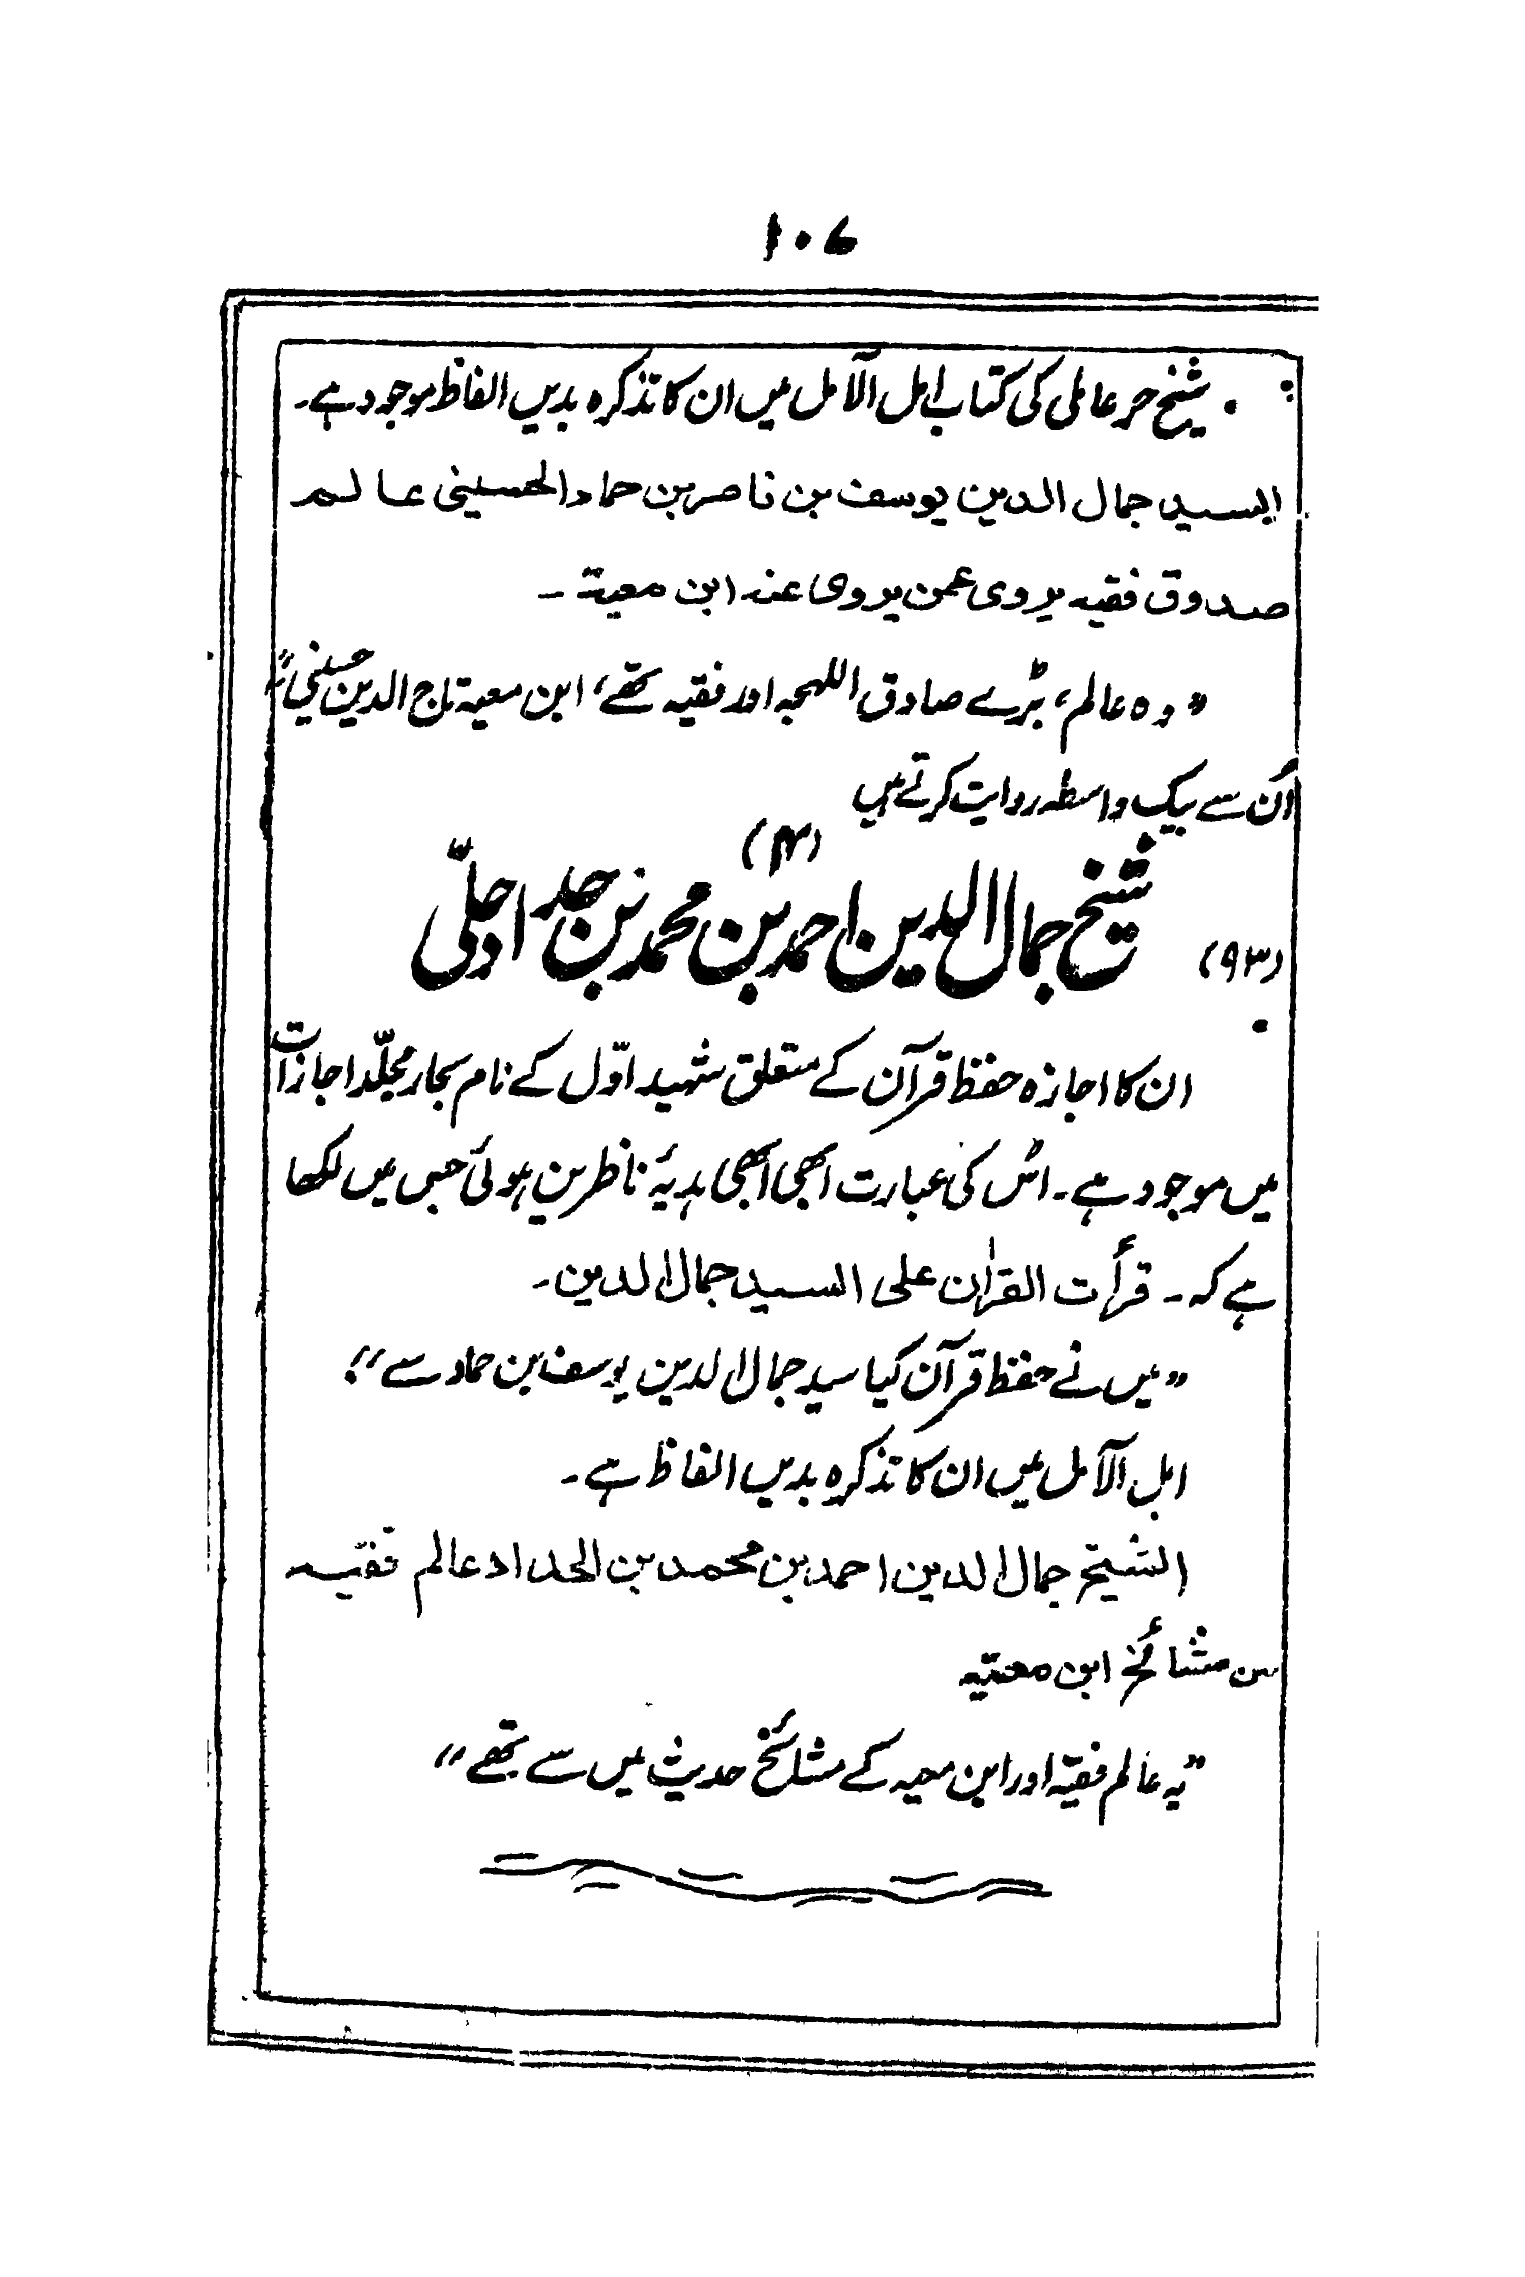 ۱۰۶
شیخ حر عاملی کی کتاب امل الآمل میں ان کا تذکرہ بدیں الفاظ موجود ہے۔
السید جمال الدین یوسف بن ناصر بن حماد الحسینی عالم
صدوق فقیہ یروی عمن یروی عنہ ابن معیۃ ۔
”وہ عالم، بڑے صادق اللہجہ اور فقیہ تھے، ابن معیۃ تاج الدین حسینی“
اُن سے بیک واسطہ روایت کرتے ہیں
(۴)
(۹۳) شیخ جمال الدین احمد بن محمد بن حداد حلّی
ان کا اجازہ حفظ قرآن کے متعلق شہید اوّل کے نام بحار مجلّد اجازات
میں موجود ہے۔ اُس کی عبارت ابھی ابھی ہدیۂ ناظرین ہوئی جس میں لکھا
ہے کہ ۔ قرأت القراٰن علی السید جمال الدین۔
”میں نے حفظ قرآن کیا سید جمال الدین یوسف بن حماد سے“؛
امل الآمل میں ان کا تذکرہ بدیں الفاظ ہے۔
الشیخ جمال الدین احمد بن محمد بن الحداد عالم فقیہ
من مشائخ ابن معیّہ
”یہ عالم فقیہ اور ابن معیہ کے مشائخ حدیث میں سے تھے“